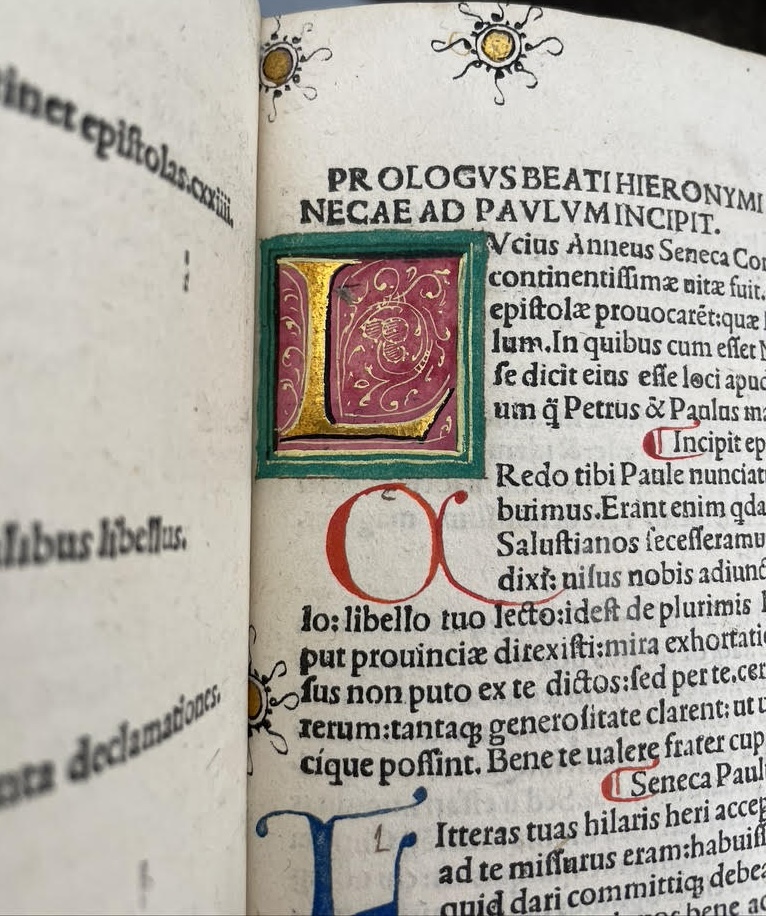 tinet epistolas.cxxiiii.
libellus.
declamationes.
PROLOGVS BEATI HIERONYMI
NECAE AD PAVLVM INCIPIT.
LVcius Anneus Seneca Cor
continentissimæ uitæ fuit.
epistolæ prouocarēt:quæ
lum.In quibus cum esset
se dicit eius esse loci apud
um q̄ Petrus & Paulus ma
¶ Incipit ep
CRedo tibi Paule nunciat
buimus.Erant enim qda
Salustianos secesseramu
dixi: uisus nobis adiunc
lo: libello tuo lecto:idest de plurimis
put prouinciæ direxisti:mira exhortati
sus non puto ex te dictos:sed per te.cer
rerum:tantaqꝫ generositate clarent: ut u
cique possint. Bene te ualere frater cup
¶ Seneca Paul
LItteras tuas hilaris heri accep
ad te missurus eram:habuiss
quid dari committiqꝫ debea
bene